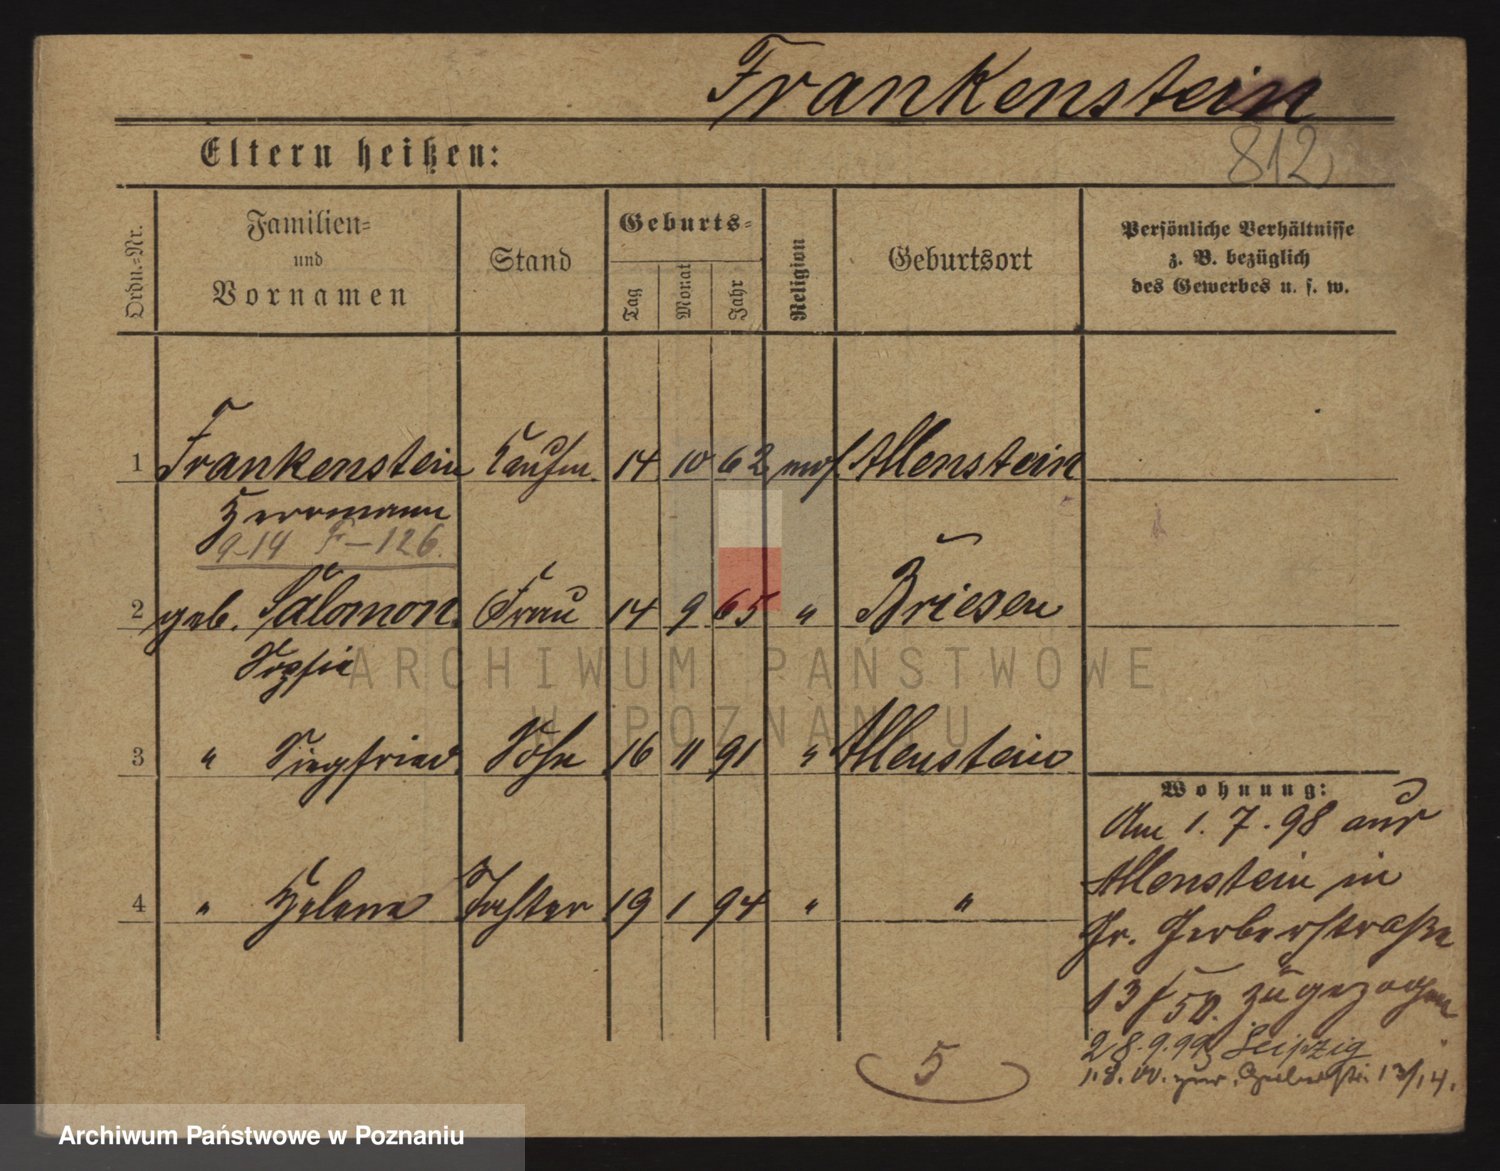 Frankenstein
812
Eltern heißen:
Ordn.-Nr.
Familien-
und
Vornamen
Stand
Geburts-
Tag
Monat
Jahr
Religion
Geburtsort
Persönliche Verhältnisse
z. B. bezüglich
des Gewerbes u. s. w.
1 Frankenstein Kaufm. 14 10 62 mos. Allenstein
Herrmann
9-14 F-126.
2 geb. Salomon Frau 14 9 65 " Briesen
Sophie
3 " Siegfried Sohn 16 11 91 " Allenstein
4 " Helene Tochter 19 1 94 " "
Wohnung:
Am 1. 7. 98 aus
Allenstein in
Gr. Gerberstraße
13 zugezogen
28.9.99 Leipzig
1.8.00. 13/14.
5
ARCHIWUM PAŃSTWOWE
W POZNANIU
Archiwum Państwowe w Poznaniu